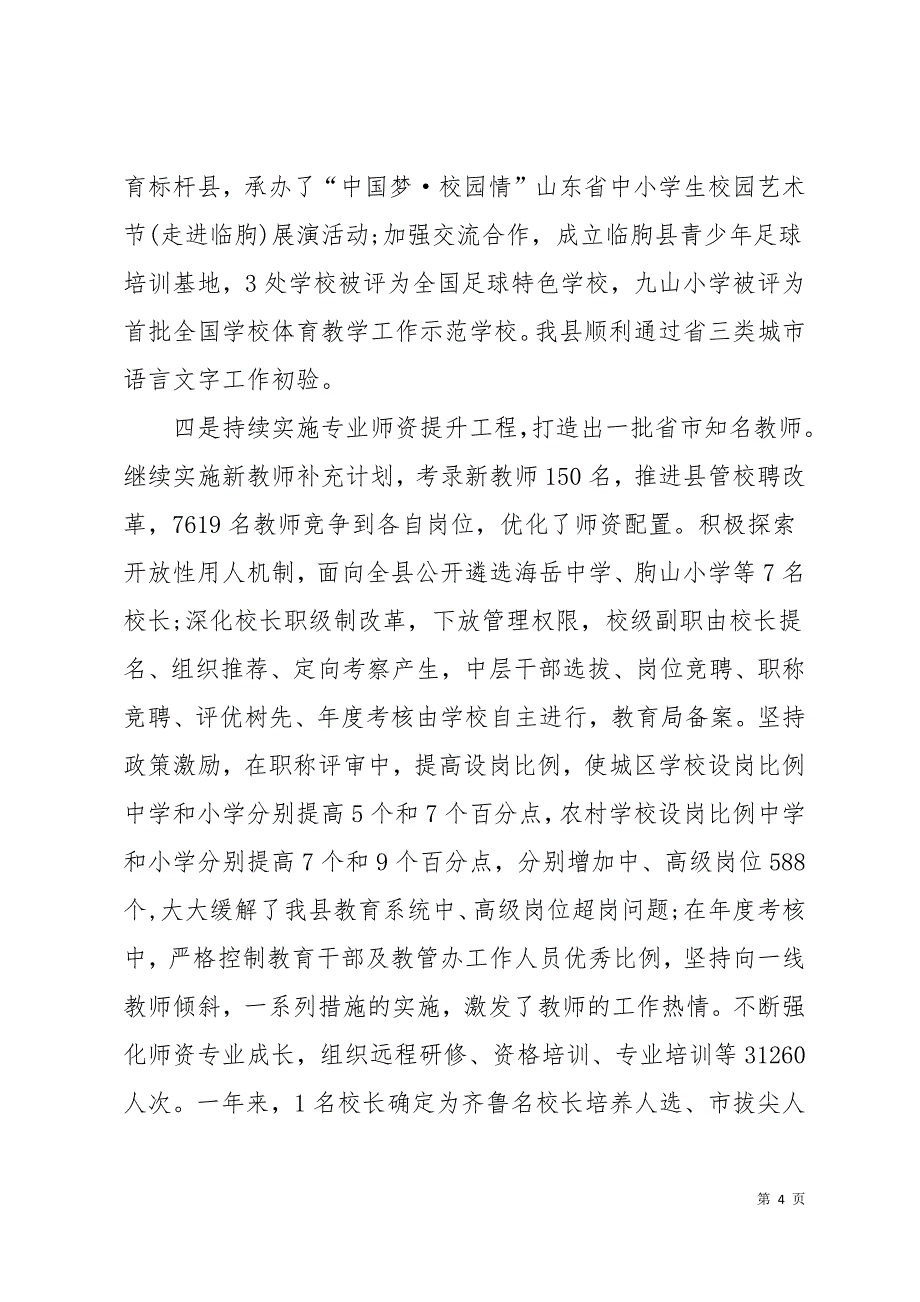 育标杆县，承办了“中国梦·校园情”山东省中小学生校园艺术
节(走进临朐)展演活动;加强交流合作，成立临朐县青少年足球
培训基地，3 处学校被评为全国足球特色学校，九山小学被评为
首批全国学校体育教学工作示范学校。我县顺利通过省三类城市
语言文字工作初验。
四是持续实施专业师资提升工程,打造出一批省市知名教师。
继续实施新教师补充计划，考录新教师 150 名，推进县管校聘改
革，7619 名教师竞争到各自岗位，优化了师资配置。积极探索
开放性用人机制，面向全县公开遴选海岳中学、朐山小学等 7 名
校长;深化校长职级制改革，下放管理权限，校级副职由校长提
名、组织推荐、定向考察产生，中层干部选拔、岗位竞聘、职称
竞聘、评优树先、年度考核由学校自主进行，教育局备案。坚持
政策激励，在职称评审中，提高设岗比例，使城区学校设岗比例
中学和小学分别提高 5 个和 7 个百分点,农村学校设岗比例中学
和小学分别提高 7 个和 9 个百分点，分别增加中、高级岗位 588
个,大大缓解了我县教育系统中、高级岗位超岗问题;在年度考核
中，严格控制教育干部及教管办工作人员优秀比例，坚持向一线
教师倾斜，一系列措施的实施，激发了教师的工作热情。不断强
化师资专业成长，组织远程研修、资格培训、专业培训等 31260
人次。一年来，1 名校长确定为齐鲁名校长培养人选、市拔尖人
第 4 页